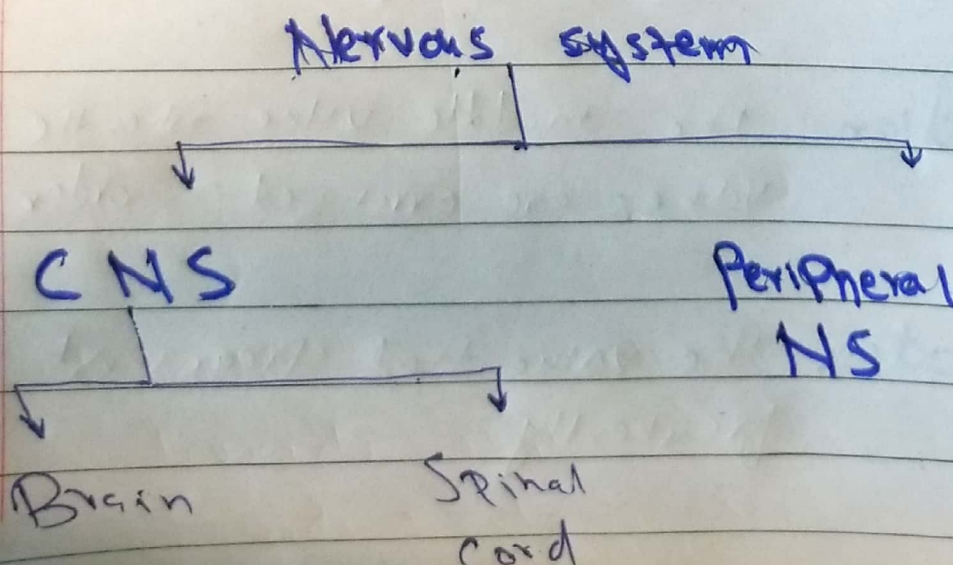 Nervous system
CNS
Peripheral
NS
Brain
Spinal
cord